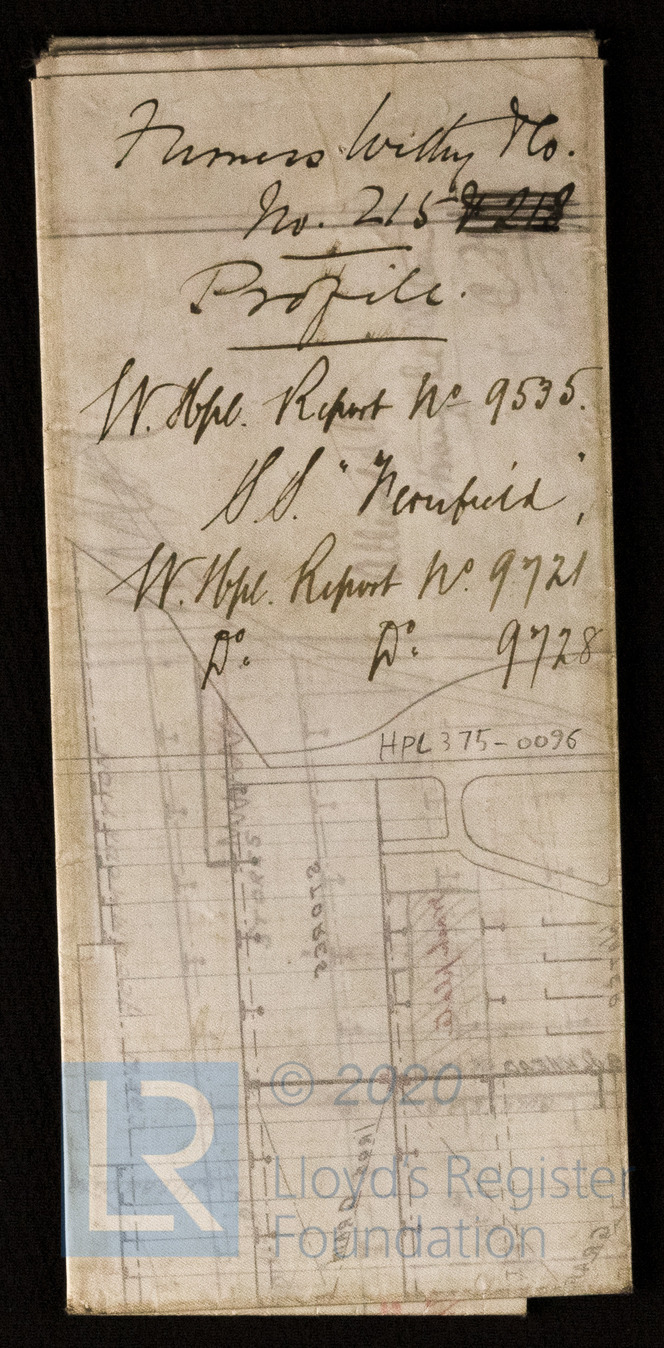 Furness Withy & Co.
No. 215 & 218
Profile.
W. Hpl. Report No 9535.
S.S. "Fernfield",
W. Hpl. Report No. 9721
Do. Do. 9728
HPL375-0096
STORES
STORES
© 2020
LR
Lloyd's Register
Foundation